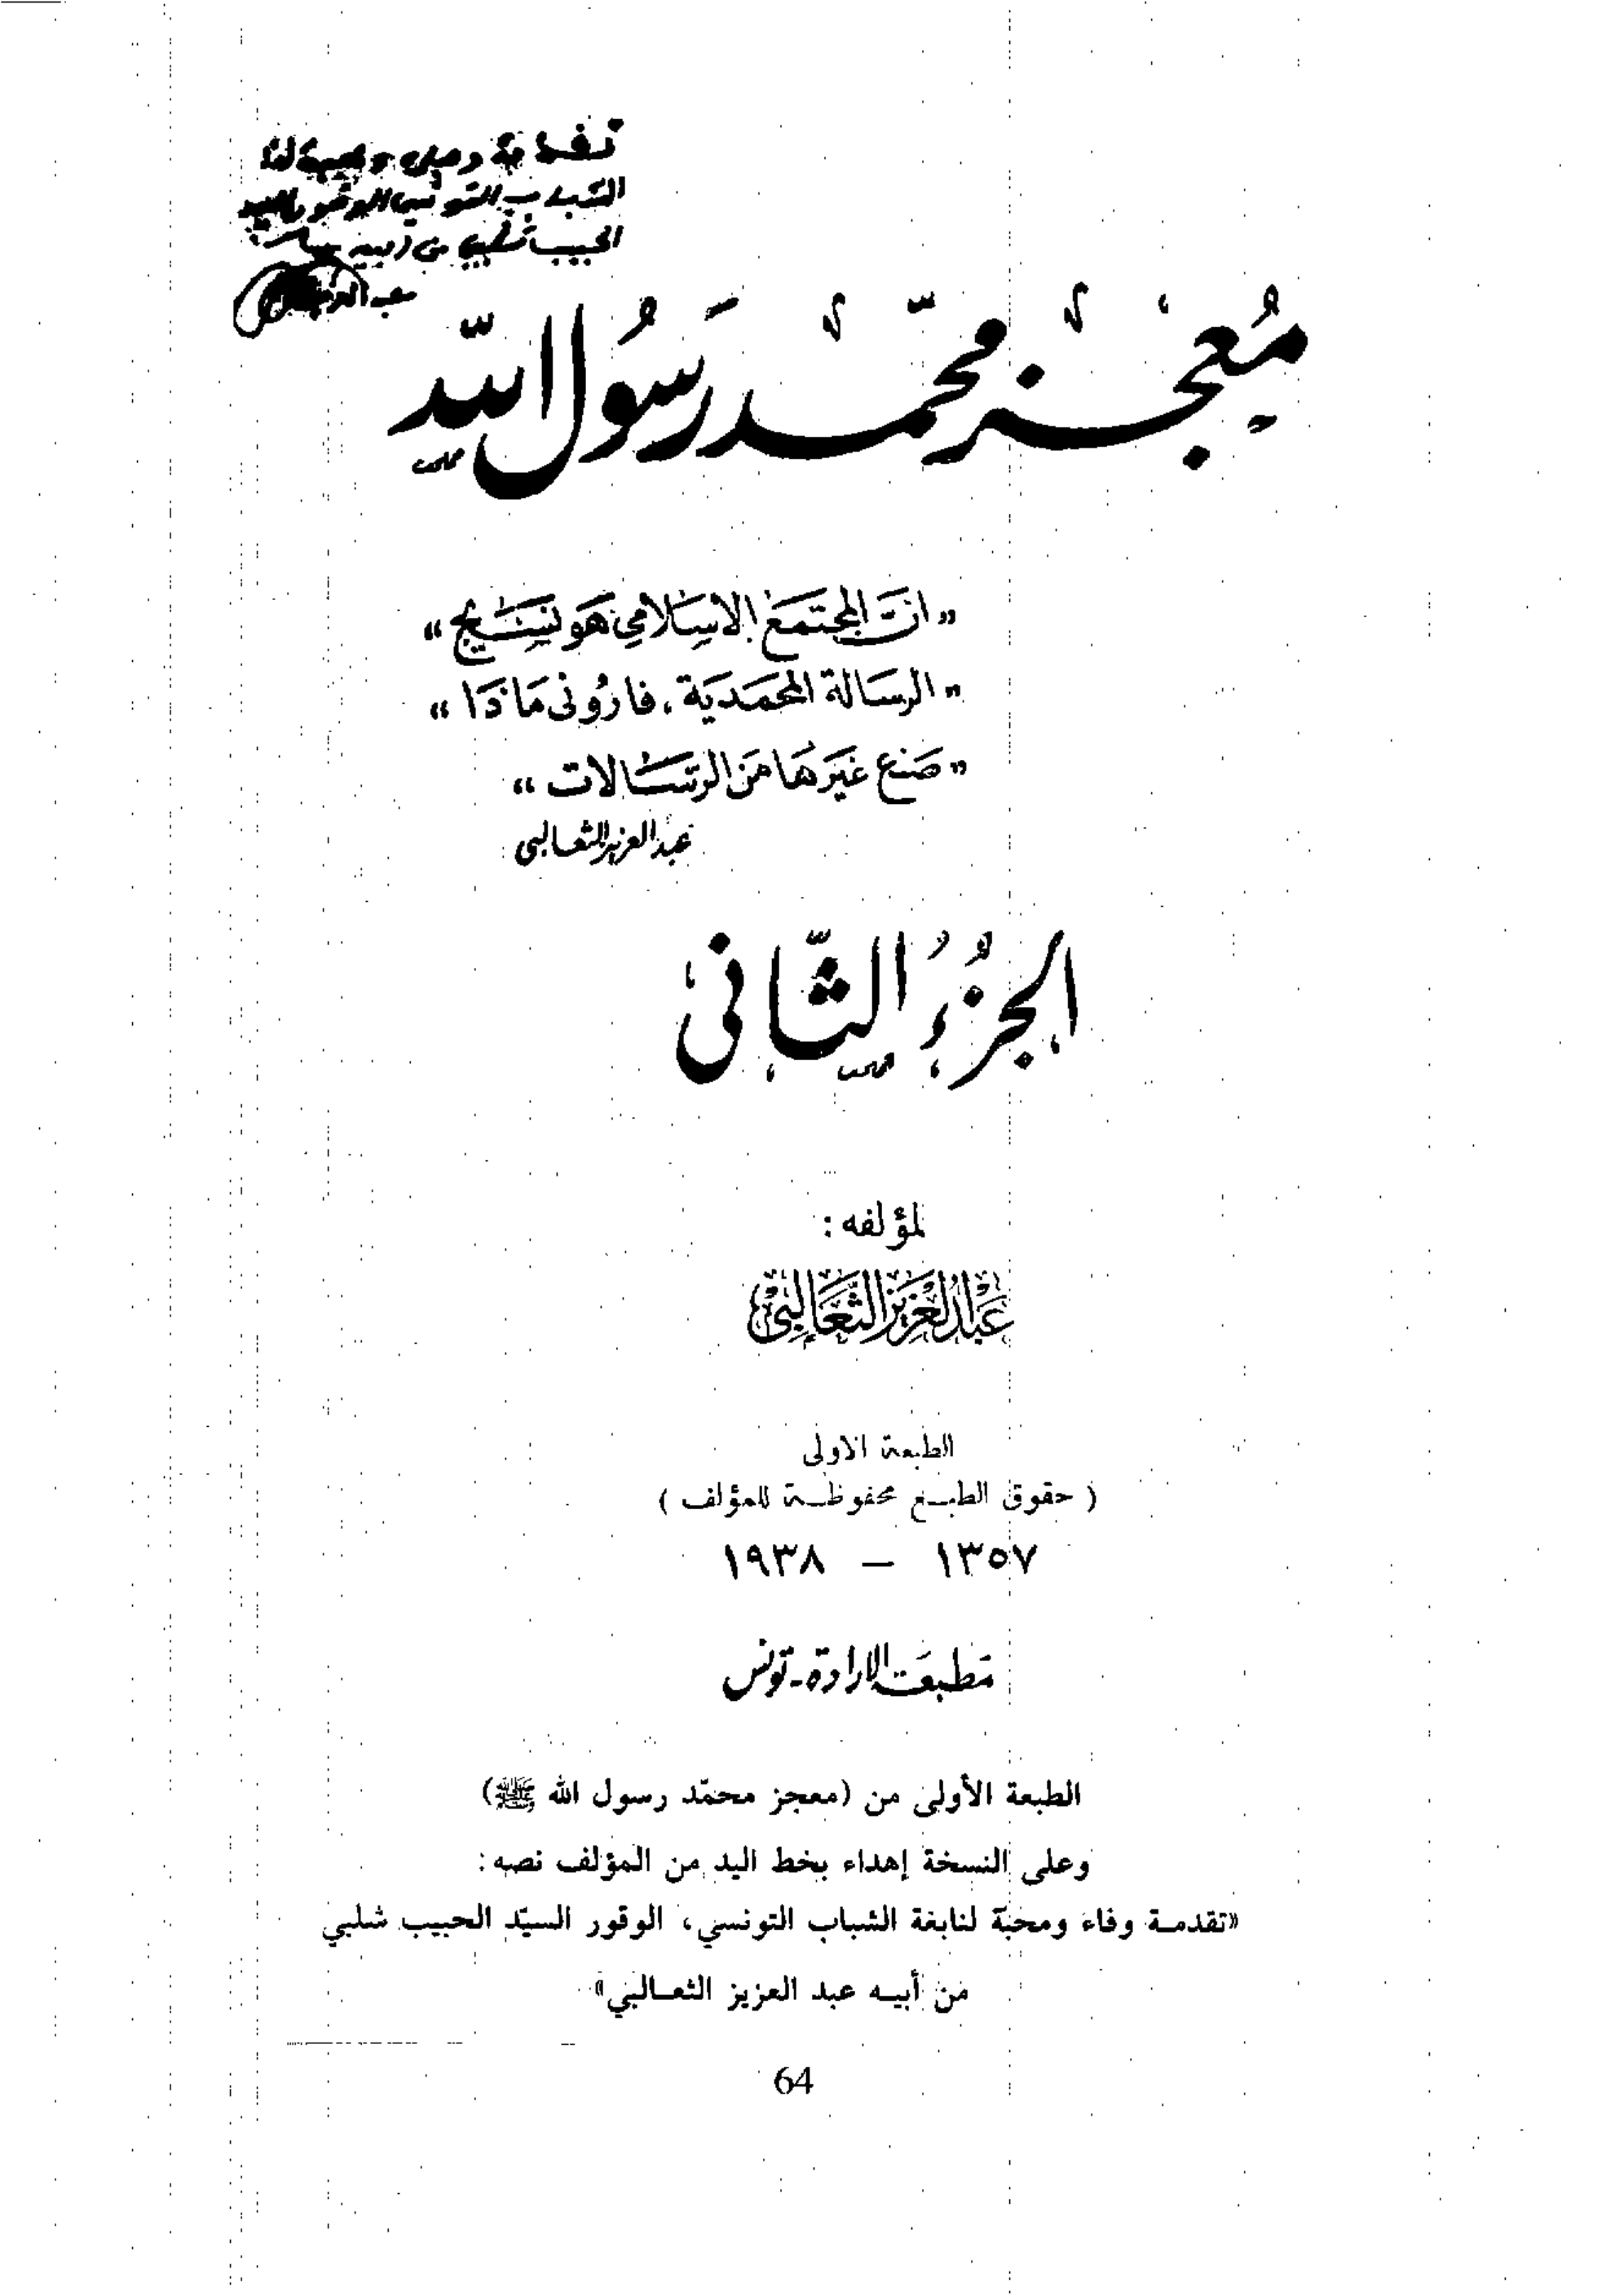 تقدمة وفاء ومحبة لنابغة
الشباب التونسي الوقور السيد
الحبيب شلبي من أبيه
عبد العزيز الثعالبي
مُعجز محمّد رَسُول اللّه
« انّ المجتمَع الاسلامي هَو نسَيج »
« الرسَالة المحمَديَة ، فارُونى مَاذَا »
« صَنع غيَرهَا مَن الرسَالات »
عبد العزيز الثعالبى
الجُزءُ الثّانى
لمؤلفه :
عَبْد العَزيز الثَعَالِبيْ
الطبعة الاولى
( حقوق الطبع محفوظة للمؤلف )
١٣٥٧ – ١٩٣٨
مَطبعَة الارادة - تونس
الطبعة الأولى من (معجز محمّد رسول الله ﷺ)
وعلى النسخة إهداء بخط اليد من المؤلف نصه:
«تقدمة وفاء ومحبّة لنابغة الشباب التونسي، الوقور السيّد الحبيب شلبي
من أبيه عبد العزيز الثعالبي»
64